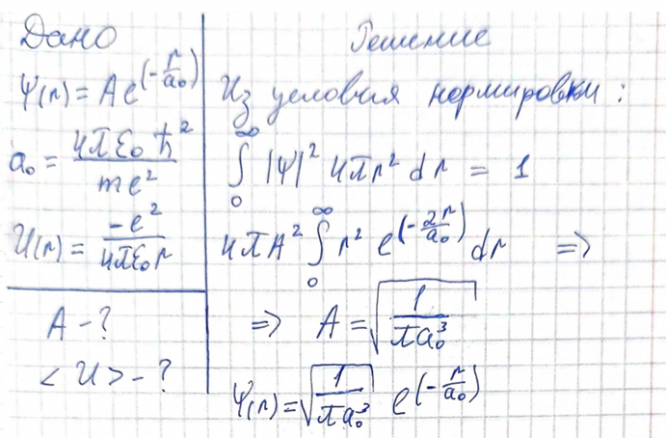 Дано
ψ(r) = A e^(-r/a₀)
a₀ = 4πε₀ħ²/me²
U(r) = -e²/4πε₀r
A - ?
<U> - ?
Решение
Из условия нормировки:
∫₀^∞ |ψ|² 4πr² dr = 1
4πA² ∫₀^∞ r² e^(-2r/a₀) dr =>
=> A = √(1/πa₀³)
ψ(r) = √(1/πa₀³) e^(-r/a₀)